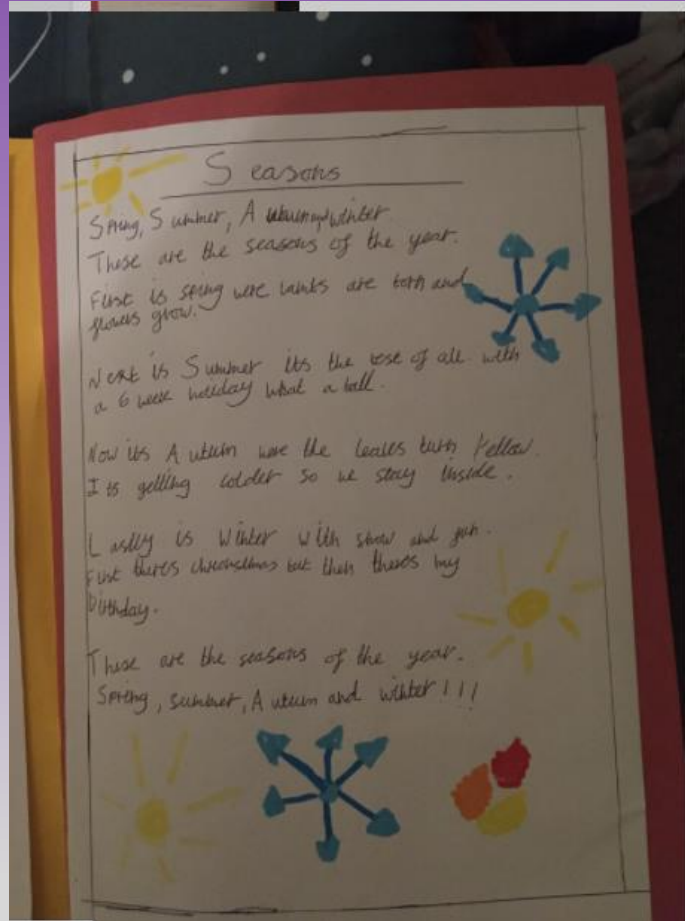 Seasons
Spring, Summer, Autumn and winter
These are the seasons of the year.
First is spring were lambs are born and
flowers grow.
Next is Summer its the best of all with
a 6 week holiday what a ball.
Now its Autum were the leaves turn Yellow.
I is getting colder so we stay inside.
Lastly is Winter with snow and fun.
First theres but then theres my
birthday.
These are the seasons of the year.
Spring, summer, Autum and winter!!!